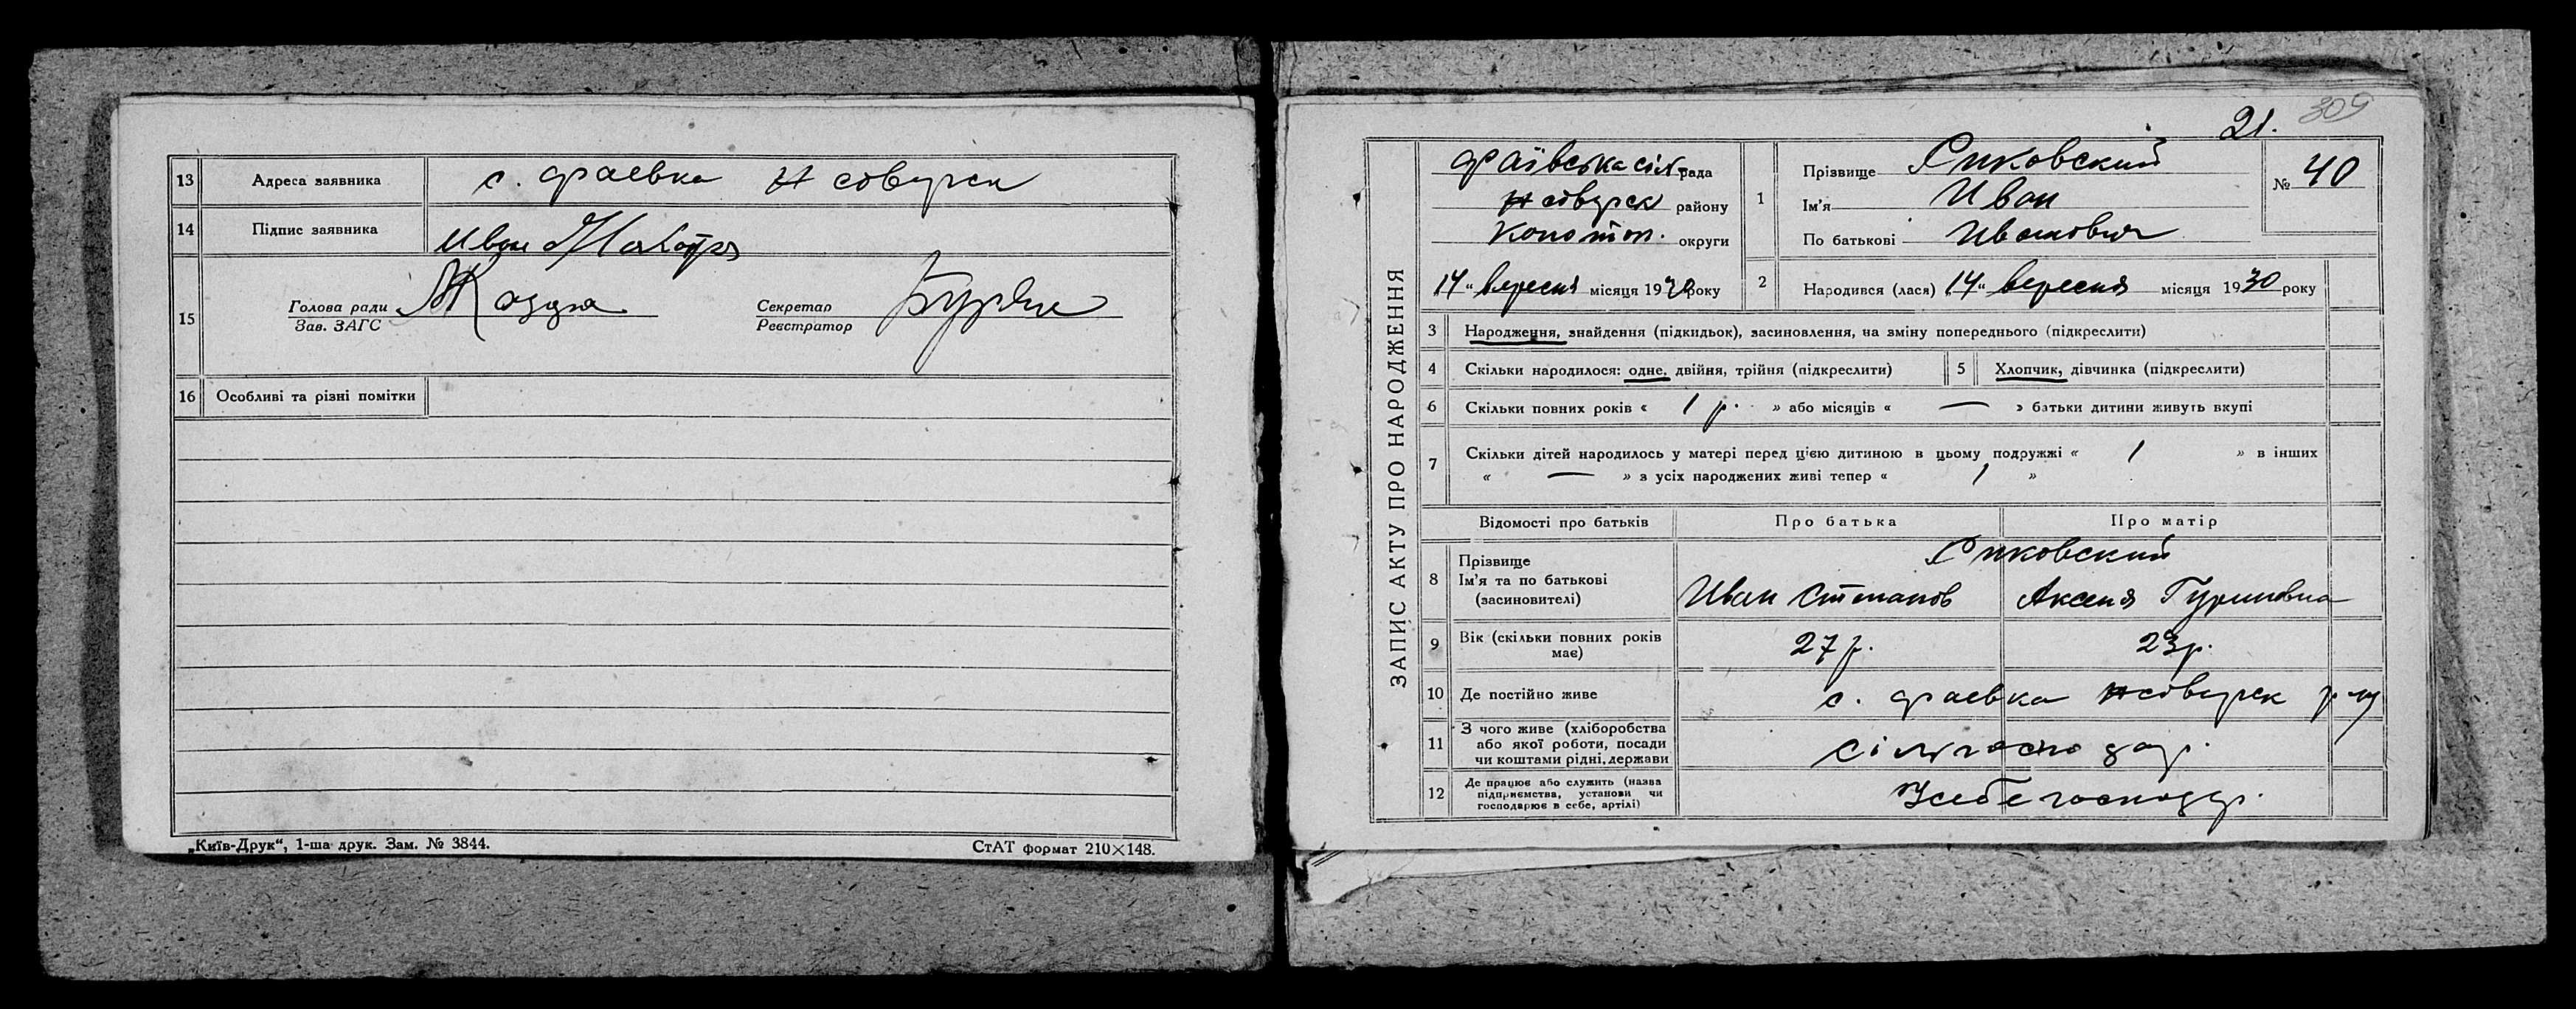 13 Адреса заявника с. Фаевка Н сіверск
14 Підпис заявника Иван
15 Голова ради Секретар
Зав. ЗАГС Реєстратор
16 Особливі та різні помітки
„Київ-Друк“, 1-ша друк. Зам. № 3844. СтАТ формат 210×148.
309
21.
ЗАПИС АКТУ ПРО НАРОДЖЕННЯ
Фаївська сіл рада
Н сіверск району
Конотоп. округи
„14“ вересня місяця 1930 року
1 Прізвище
Ім'я Иван
По батькові Иванович
№ 40
2 Народився (лася) „14“ вересня місяця 1930 року
3 Народження, знайдення (підкидьок), засиновлення, на зміну попереднього (підкреслити)
4 Скільки народилося: одне, двійня, трійня (підкреслити) 5 Хлопчик, дівчинка (підкреслити)
6 Скільки повних років « 1 р. » або місяців « — » батьки дитини живуть вкупі
7 Скільки дітей народилось у матері перед цією дитиною в цьому подружжі « 1 » в інших
« — » з усіх народжених живі тепер « 1 »
Відомості про батьків Про батька Про матір
8 Прізвище
Ім'я та по батькові
(засиновителі) Иван Степанов Аксеня Гуриновна
9 Вік (скільки повних років
має) 27 р. 23 р.
10 Де постійно живе с. Фаевка Н сіверск р-ну
11 З чого живе (хліборобства
або якої роботи, посади
чи коштами рідні, держави
12 Де працює або служить (назва
підприємства, установи чи
господарює в себе, артілі) У себе господар.